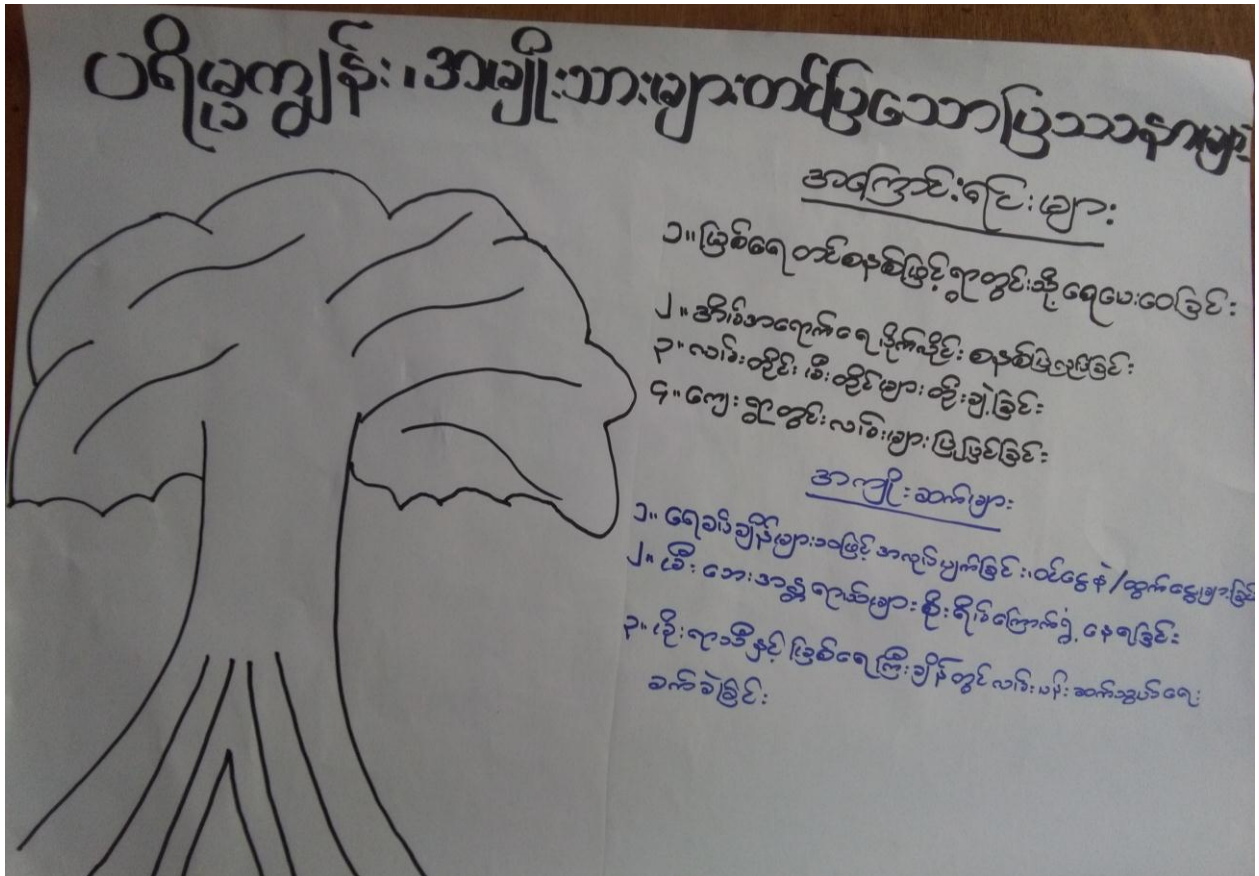 ပရိမ္မကျွန်း ၊ အမျိုးသားများတင်ပြသောပြဿနာများ
အကြောင်းရင်းများ
၁။ မြစ်ရေတင်စနစ်ဖြင့်ရွာတွင်းသို့ ရေပေးဝေခြင်း
၂။ အိမ်အရောက်ရေ ပိုက်လိုင်း စနစ်ပြုလုပ်ခြင်း
၃။ လမ်းတိုင်း မီးတိုင်များ တိုးချဲ့ခြင်း
၄။ ကျေးရွာတွင်းလမ်းများ ပြုပြင်ခြင်း
အကျိုးဆက်များ
၁။ ရေခပ်ချိန်များသဖြင့် အလုပ်ပျက်ခြင်း၊ ဝင်ငွေနဲ/ထွက်ငွေများခြင်း
၂။ မီးဘေးအန္တရာယ်များ စိုးရိမ်ကြောက်ရွံ့ နေရခြင်း
၃။ မိုးရာသီနှင့် မြစ်ရေကြီးချိန်တွင် လမ်းပန်းဆက်သွယ်ရေး
ခက်ခဲခြင်း